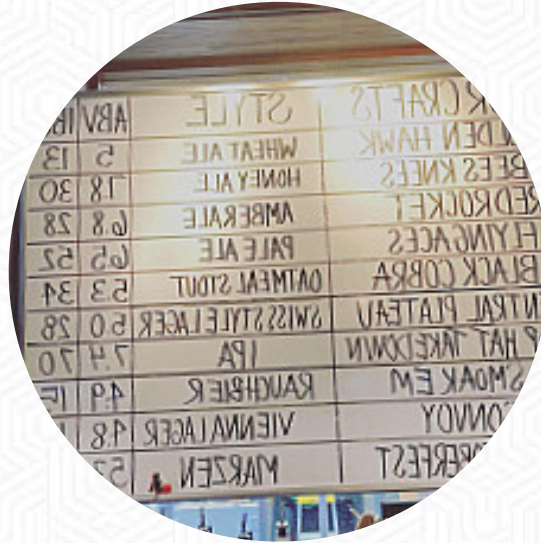 CRAFTS STYLE ABV
DEN HAWK WHEAT ALE 5 13
BEES KNEES HONEY ALE 7.8 30
RED ROCKET AMBER ALE 6.8 28
FLYING ACES PALE ALE 6.5 52
BLACK COBRA OATMEAL STOUT 5.3 34
NTRAL PLATEAU SWISS STYLE LAGER 5.0 28
HAT TAKEDOWN IPA 7.4 70
SMOAK EM RAUCHBIER 4.9
ONVOY VIENNA LAGER 4.8
BERFEST MARZEN